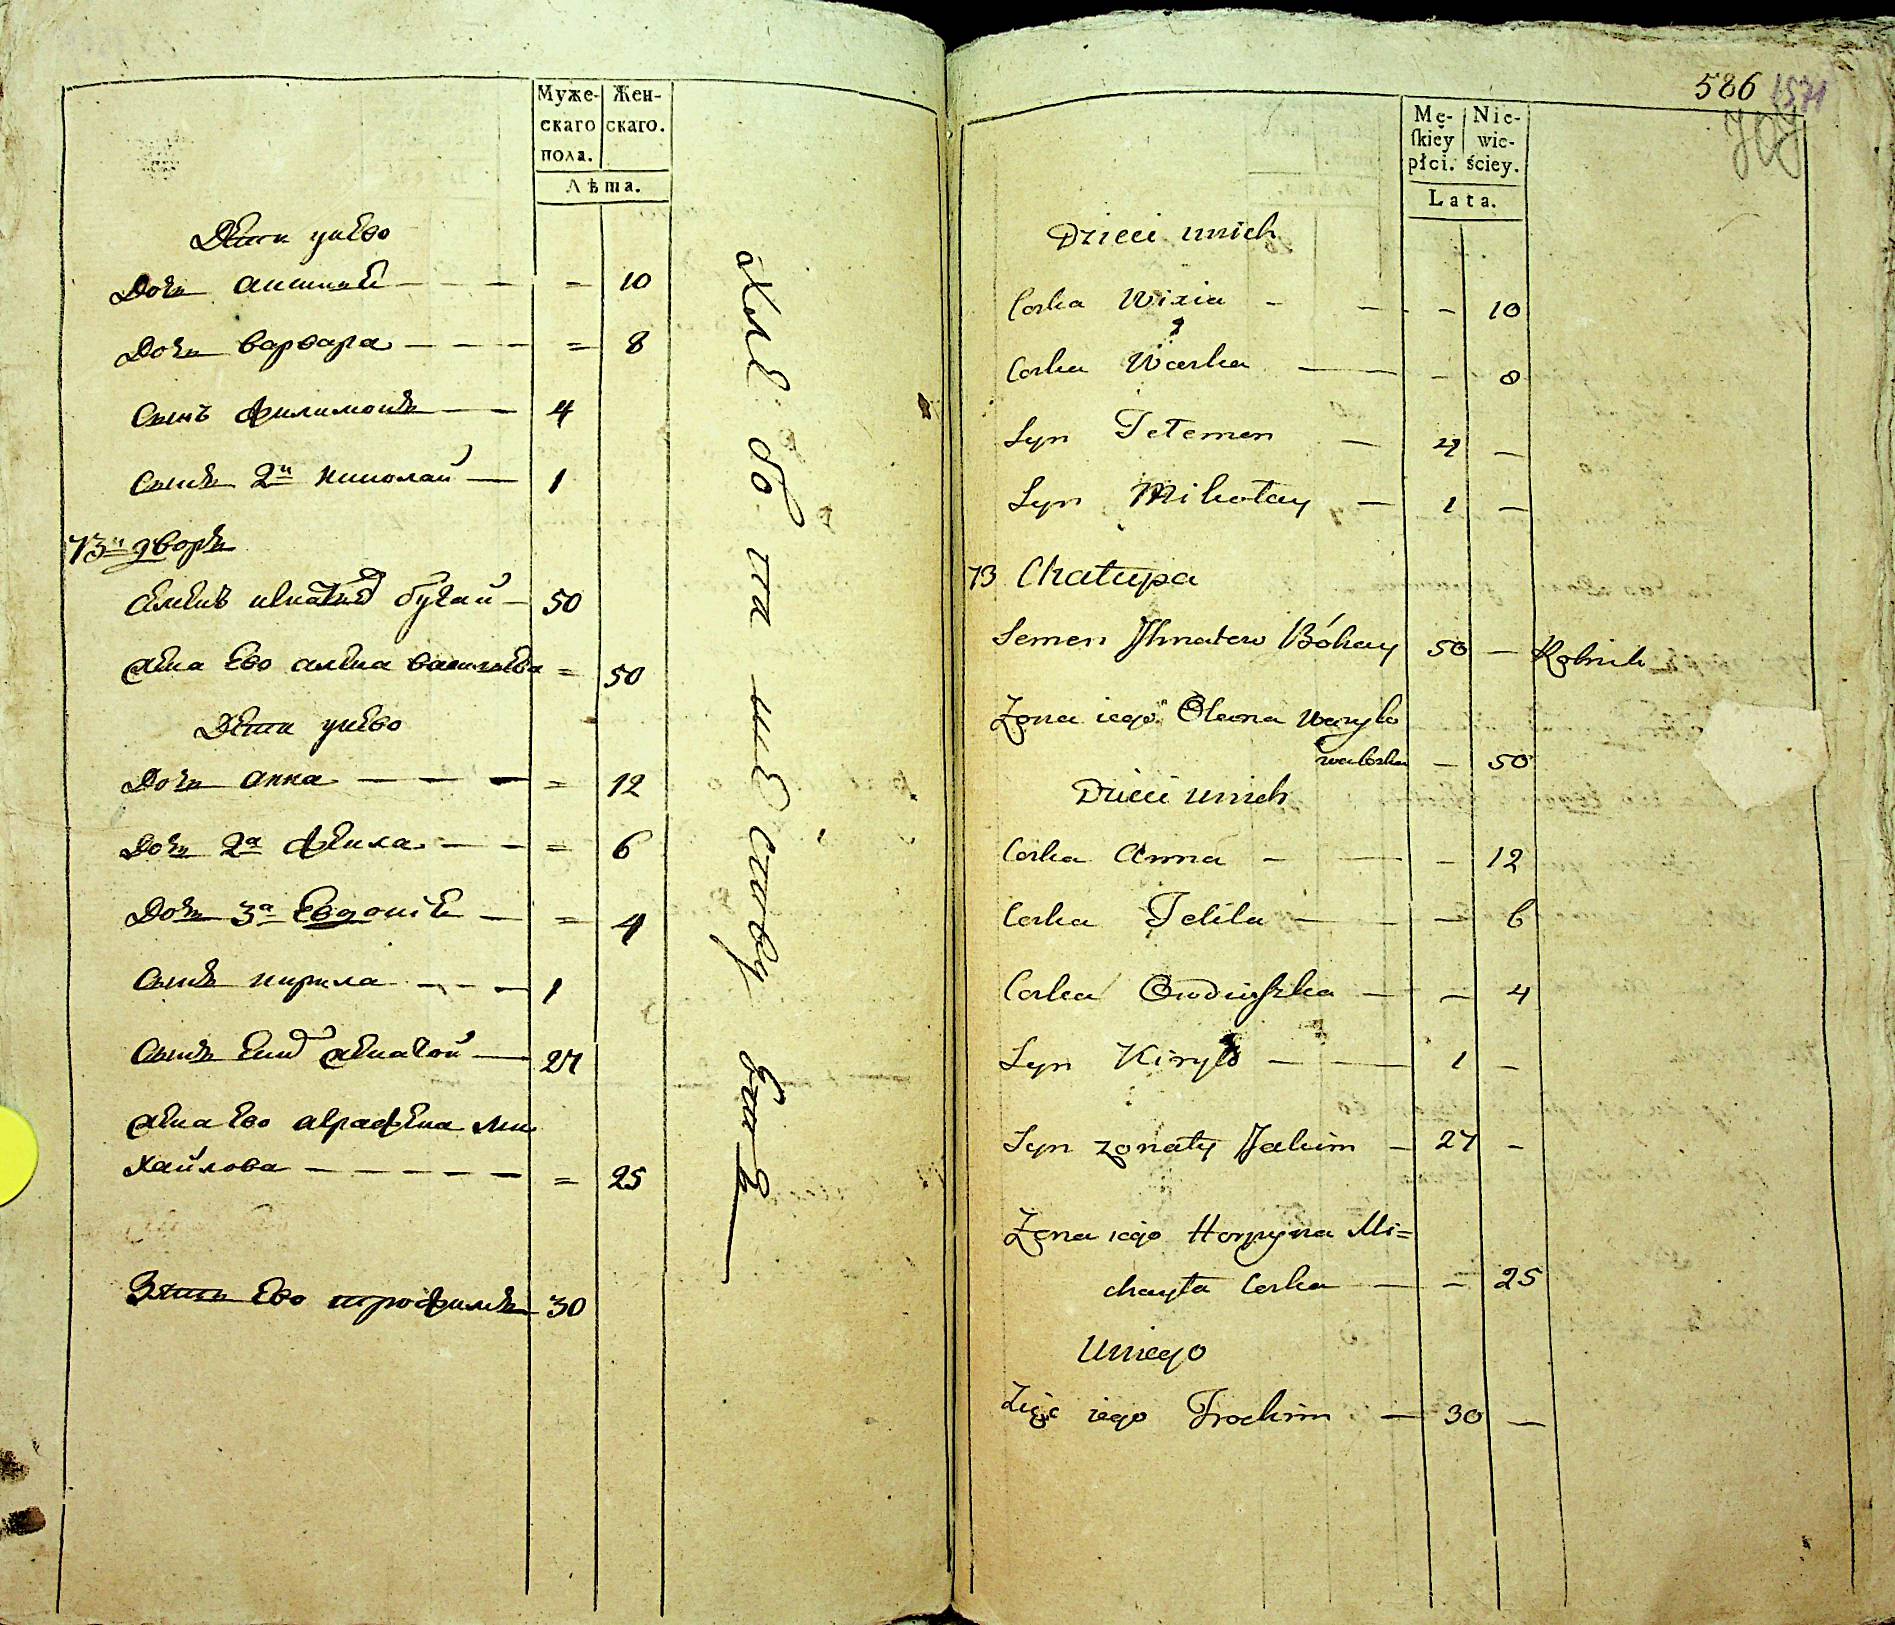 Муже-
скаго
пола.
Жен-
скаго.
Лѣта.
Дети унево
Дочь 10
Дочь варвара 8
Сынъ филимонъ 4
Сынъ 2й николай 1
73й дворъ
Семенъ игнатевъ бугай 50
жена ево алена василева 50
Дети унево
Дочь анна 12
Дочь 2я фекла 6
Дочь 3я Евдокия 4
Сынъ кирила 1
Сынъ женатой 27
жена ево аграфена ми
хайлова 25
Зять Ево трофимъ 30
586
Mę-
ſkiey
płci.
Nie-
wie-
ściey.
Lata.
Dzieci unich
Corka Wixia - - - - 10
Corka Warka - - - 8
Syn Fetemen - 4 -
Syn Mikołay - 1 -
73 Chałupa
Semen Ihnatew Bóhay 50 - Rolnik
Zona iego Olena Wasyło
wa Corka - 50
Dzieci unich
Corka Anna - - - 12
Corka Fekla - - 6
Corka Owduszka - - 4
Syn Kiryło - - 1 -
Syn zonaty Jakim - 27 -
Zona iego Horpyna Mi=
chayła Corka - - 25
Uniego
Zięć iego Trochim - 30 -